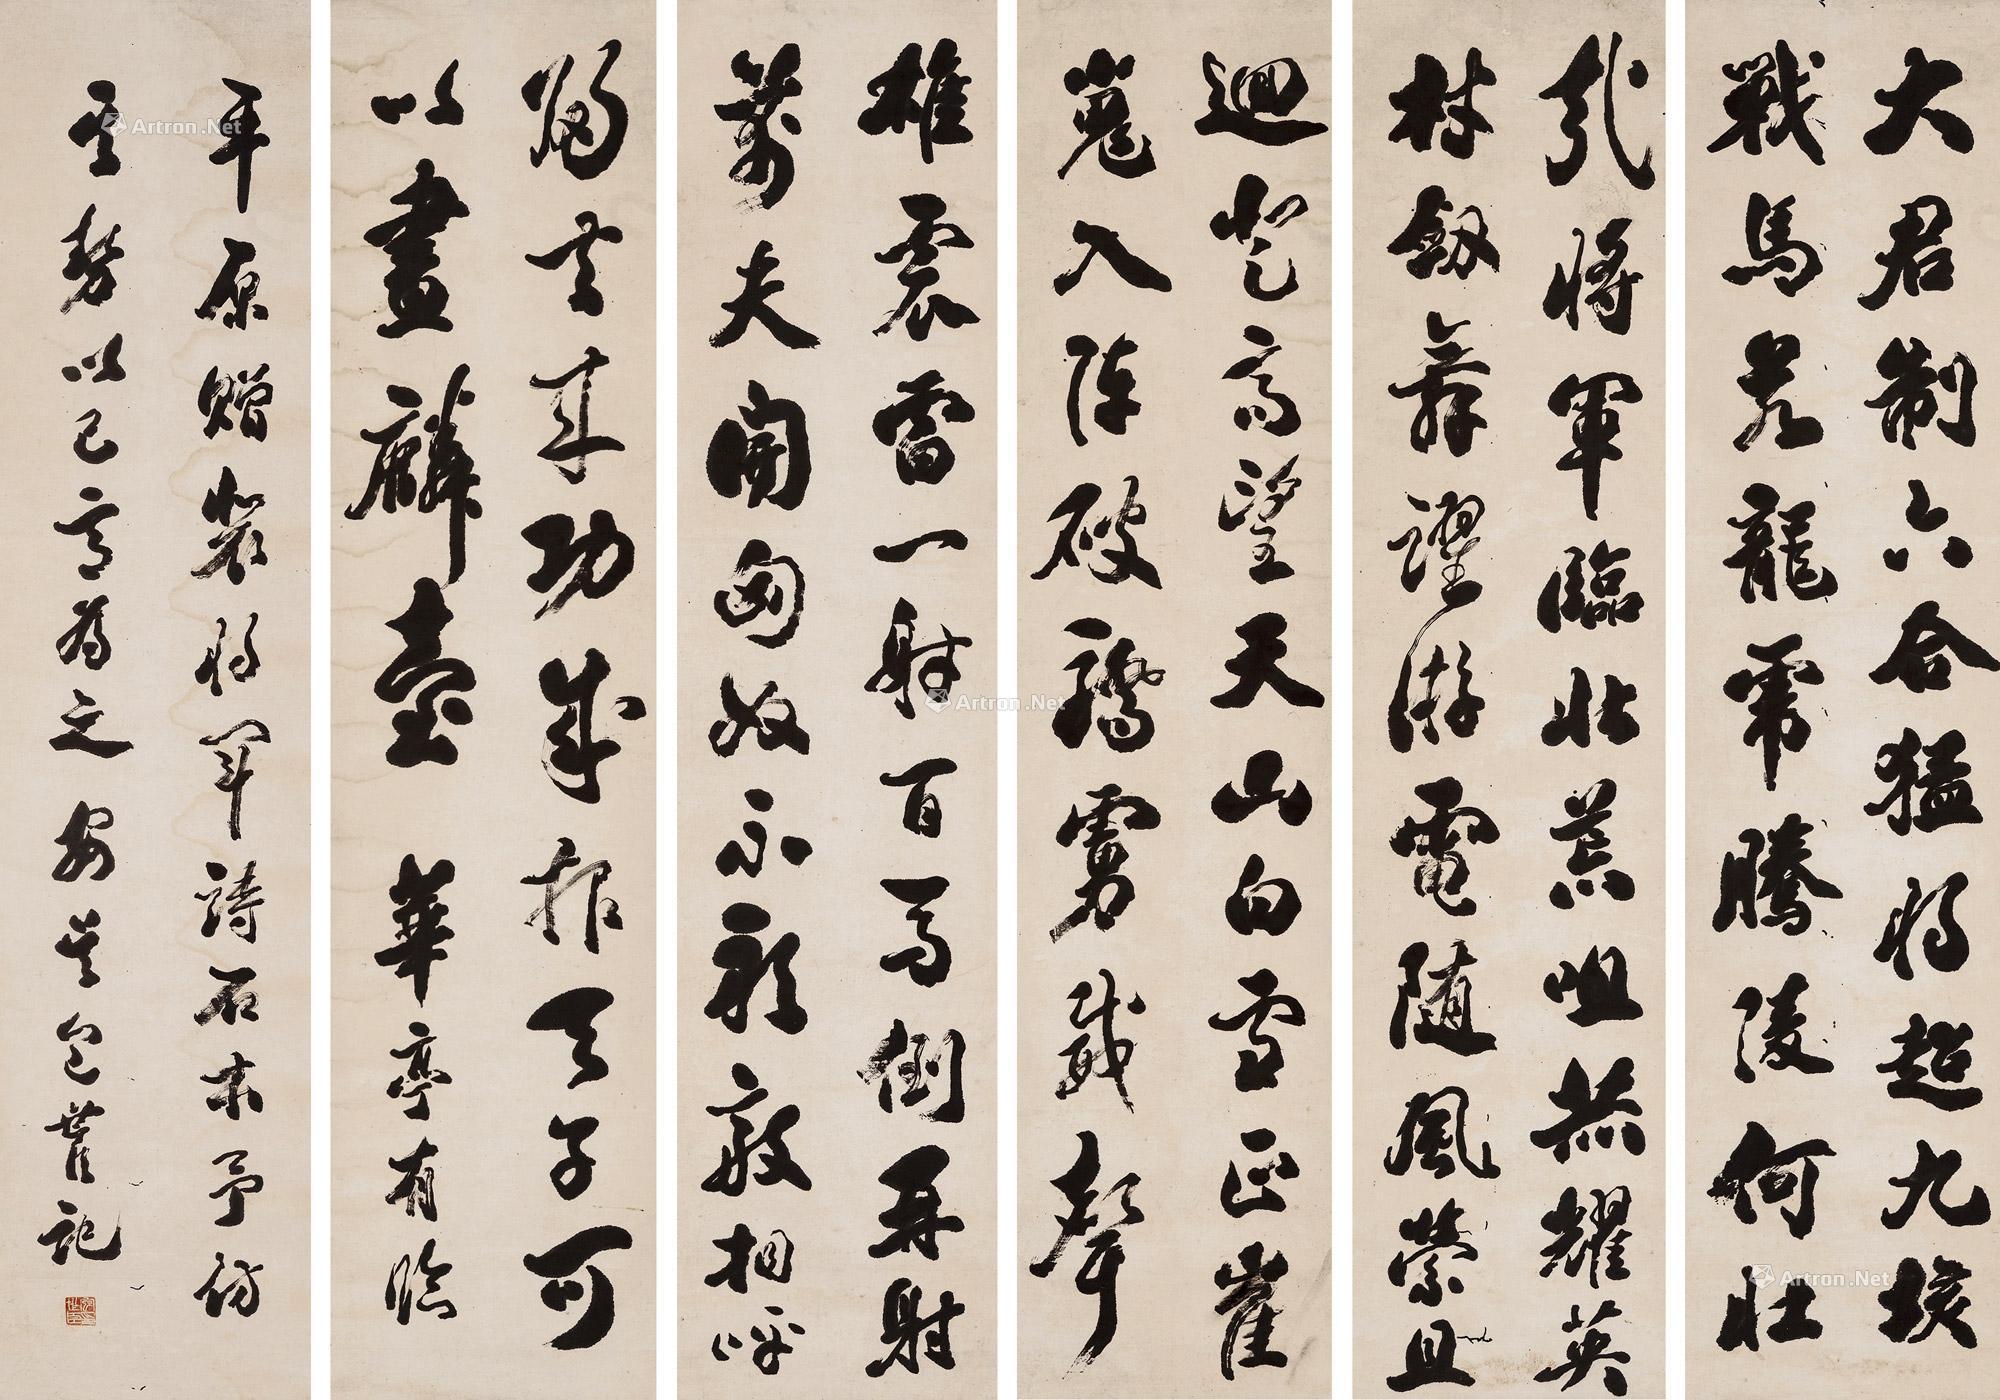 大君制六合猛將超九垓
戰馬若龍虎騰陵何壯
哉將軍臨北荒烜赫耀英
材劔舞躍游電隨風縈且
迴登高望天山白雪正崔
嵬入陣破驕虜威聲
雄震雷一射百馬倒再射
萬夫開匈奴不敢敵相呼
歸去來功成報天子可
以畫麟臺 華亭有臨
平原贈裴將軍詩石本予仿
其勢以己意為之安吳包世臣記
Artron.Net
Artron.Net
Artron.Net